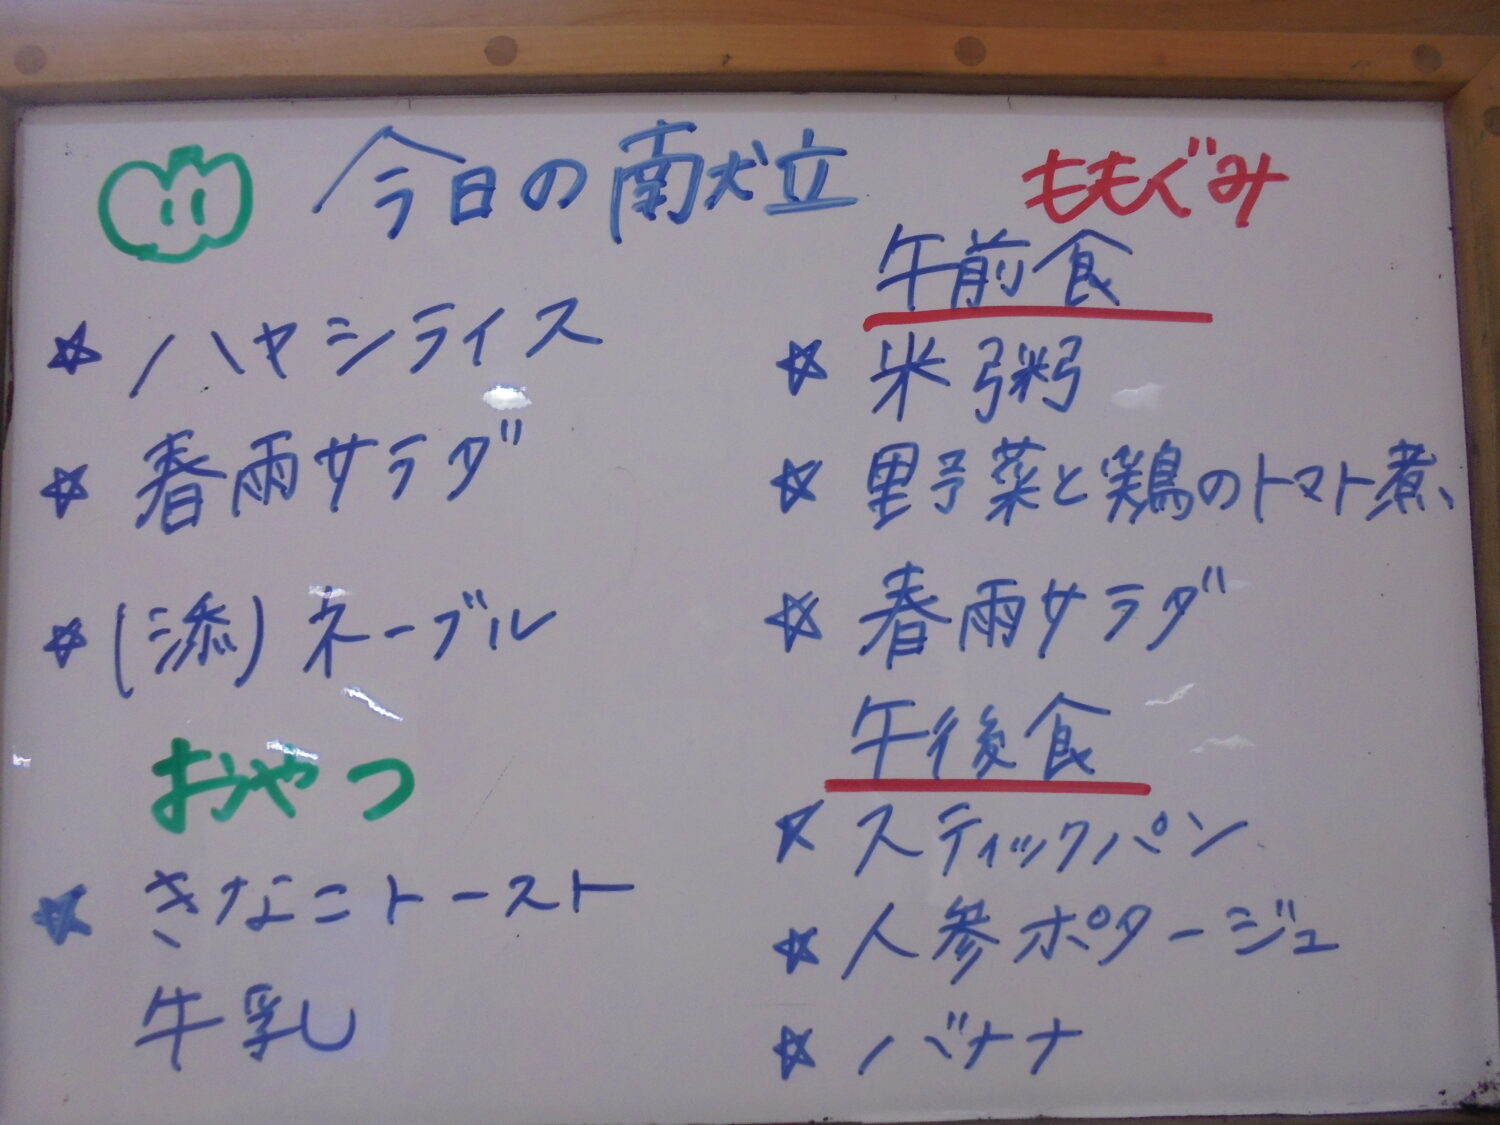 今日の献立
☆ハヤシライス
☆春雨サラダ
☆(添)ネーブル
おやつ
☆きなこトースト
牛乳
ももぐみ
午前食
☆米粥
☆野菜と鶏のトマト煮、
☆春雨サラダ
午後食
☆スティックパン
☆人参ポタージュ
☆バナナ